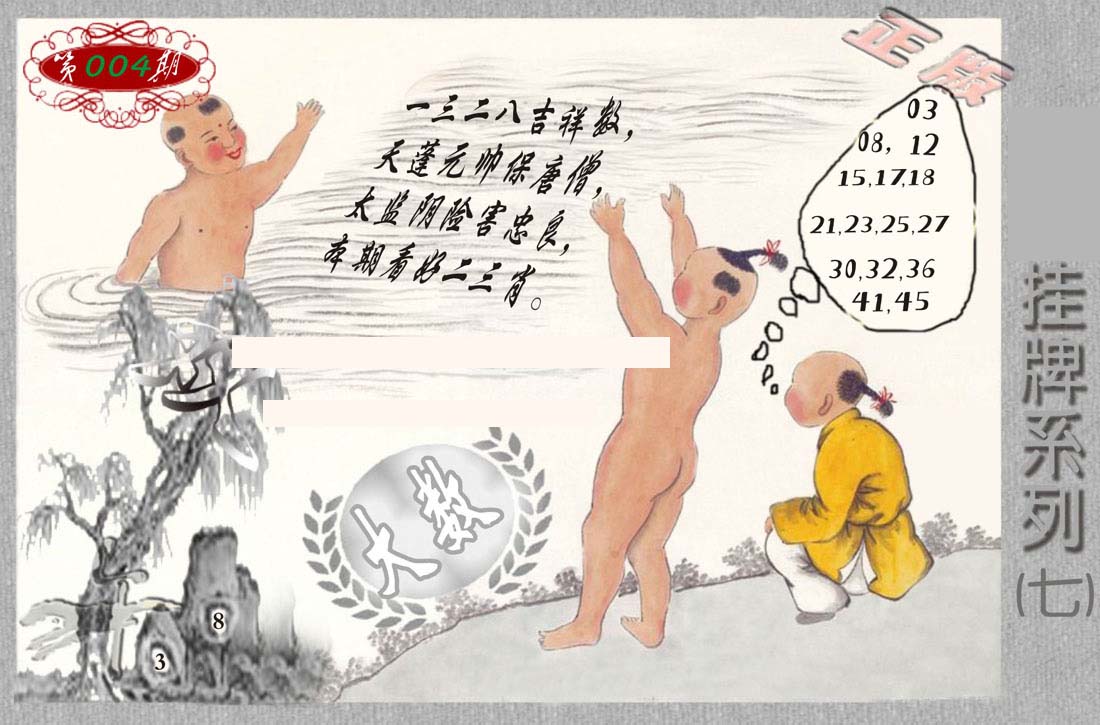 第004期
正版
一三二八吉祥数，
天蓬元帅保唐僧，
太监阴险害忠良，
本期看好二三肖。
03
08, 12
15,17,18
21,23,25,27
30,32,36
41,45
大数
8
3
挂牌系列(七)